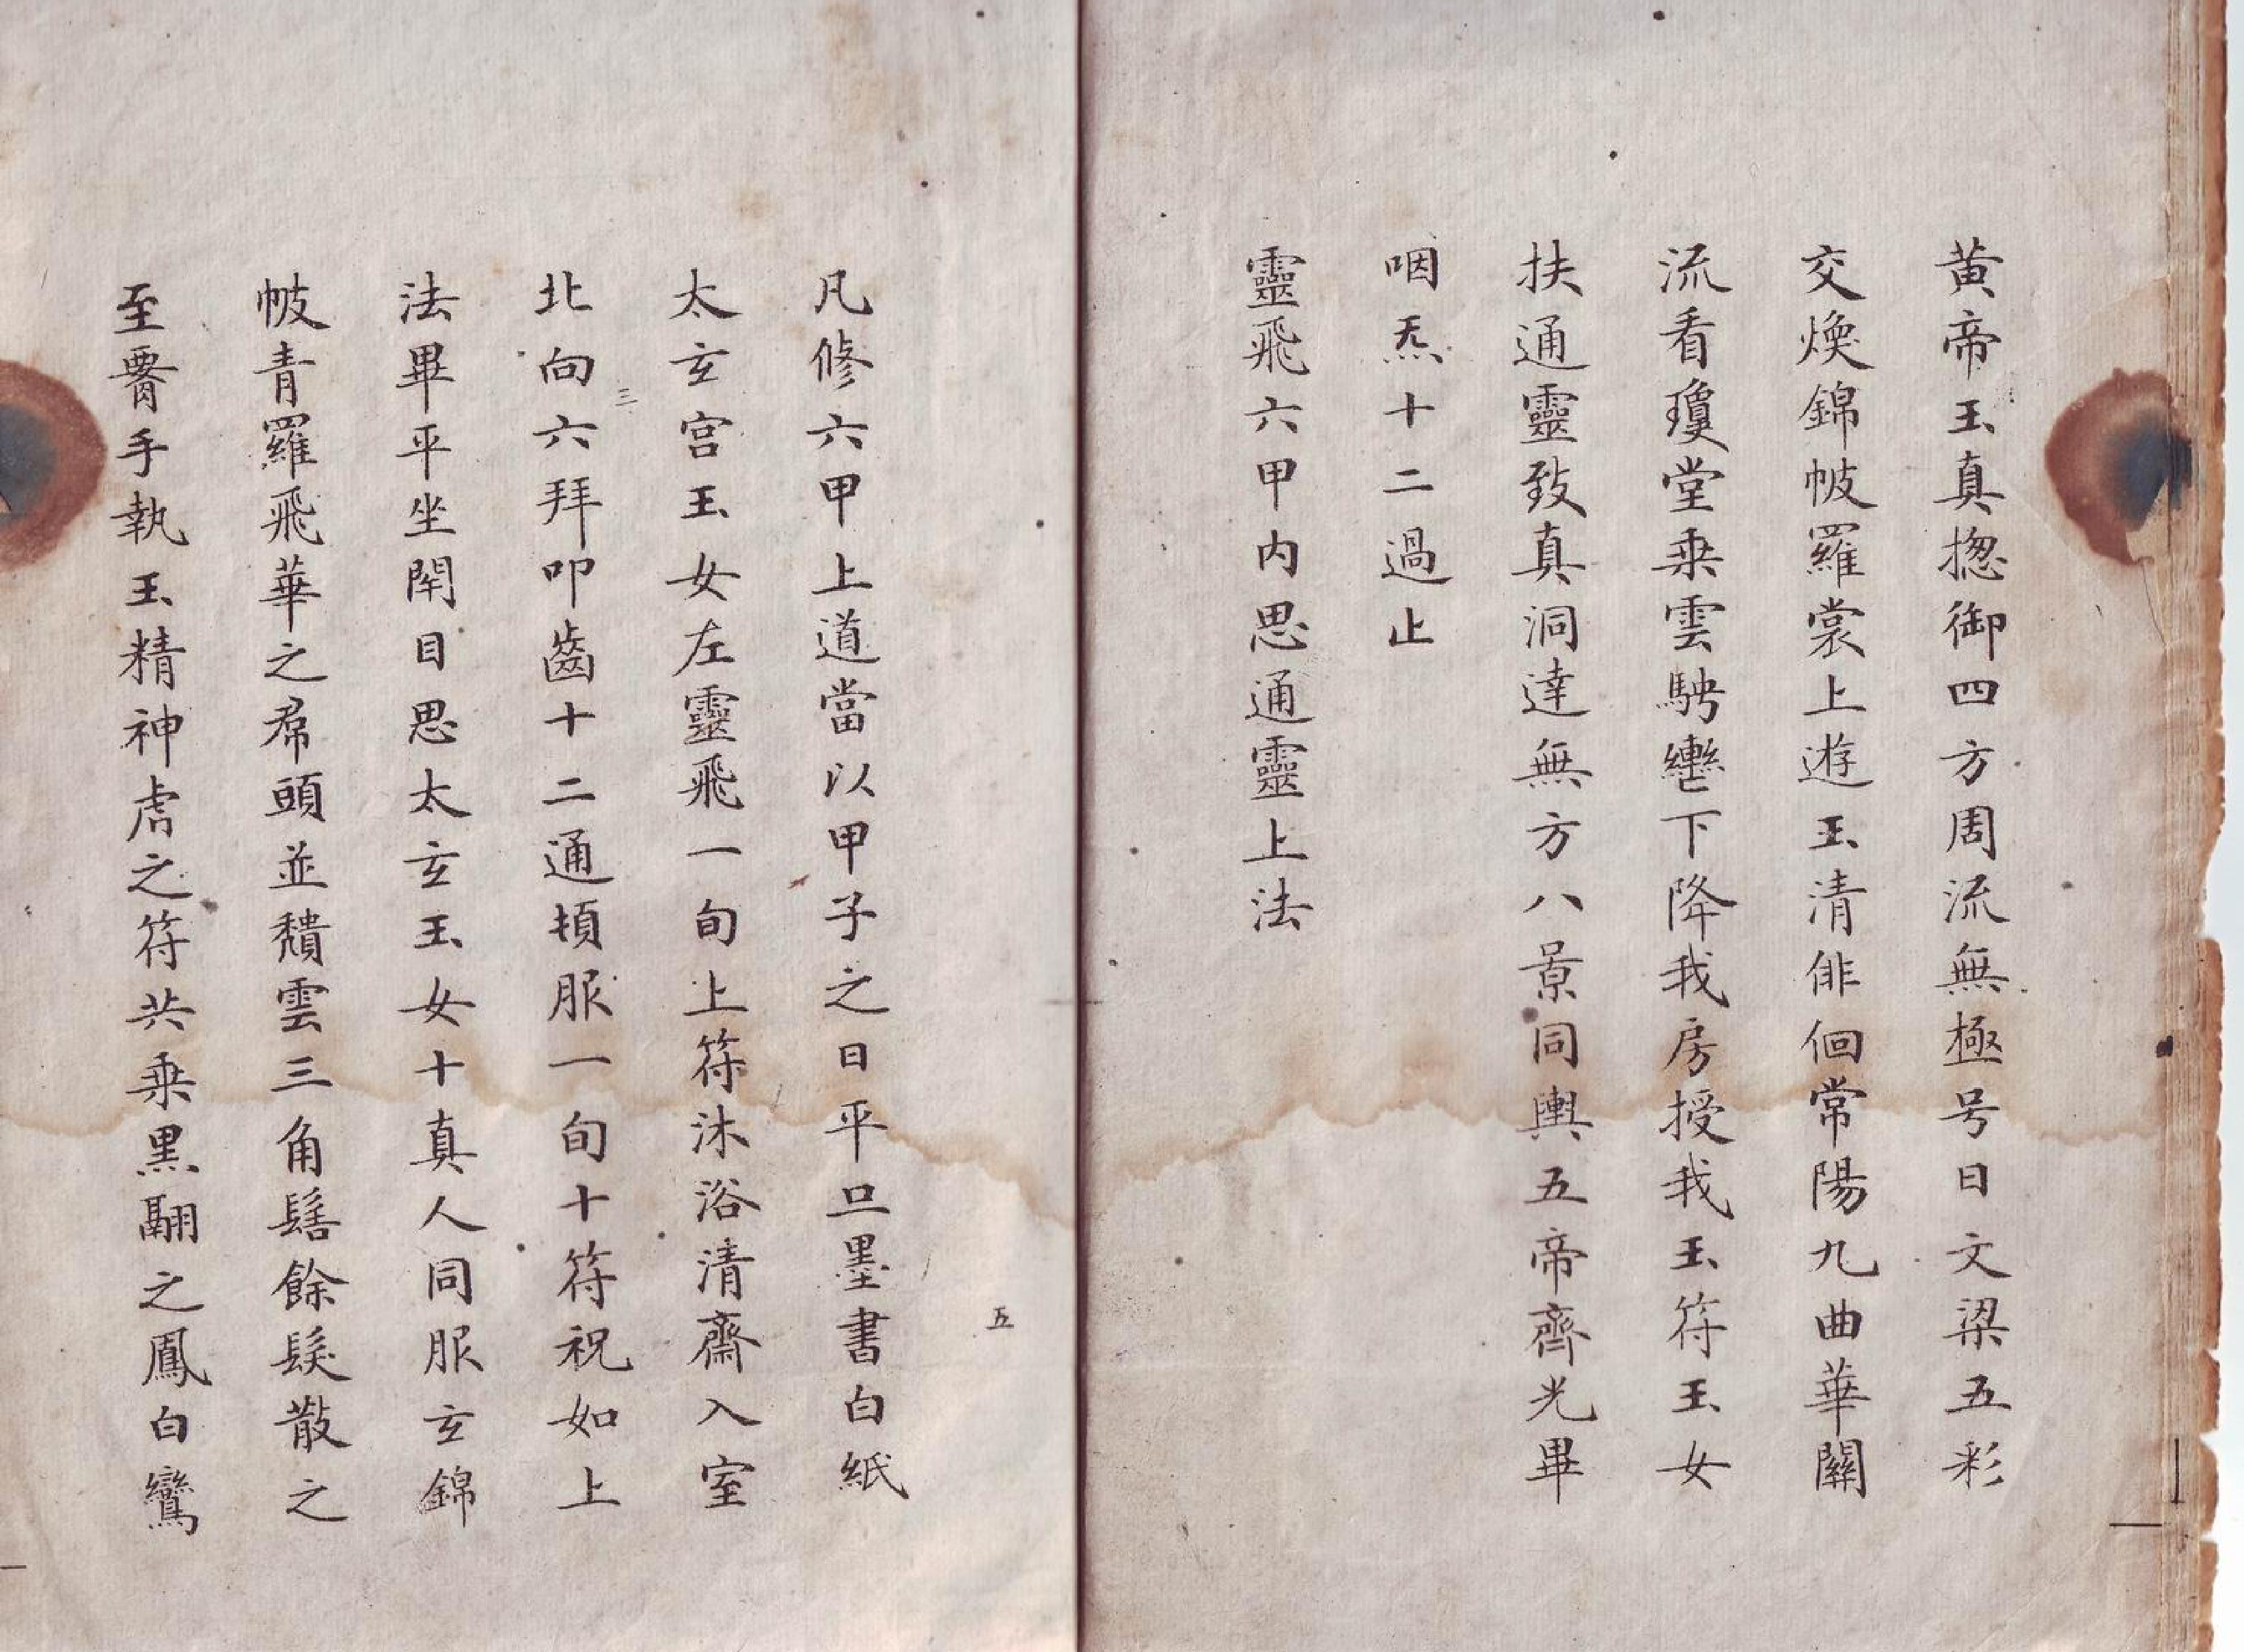 黄帝玉真揔御四方周流無極号日文梁五彩
交煥錦帔羅裳上遊玉清俳佪常陽九曲華關
流看瓊堂乗雲騁轡下降我房授我玉符玉女
扶通靈致真洞達無方八景同輿五帝齊光畢
咽炁十二過止
靈飛六甲内思通靈上法
凡修六甲上道當以甲子之日平旦墨書白紙
太玄宫玉女左靈飛一旬上符沐浴清齋入室
北向六拜叩齒十二通頓服一旬十符祝如上
法畢平坐閇目思太玄玉女十真人同服玄錦
帔青羅飛華之帬頭並頽雲三角髻餘髮散之
至署手執玉精神虎之符共乗黒翮之鳳白鸞
三
五